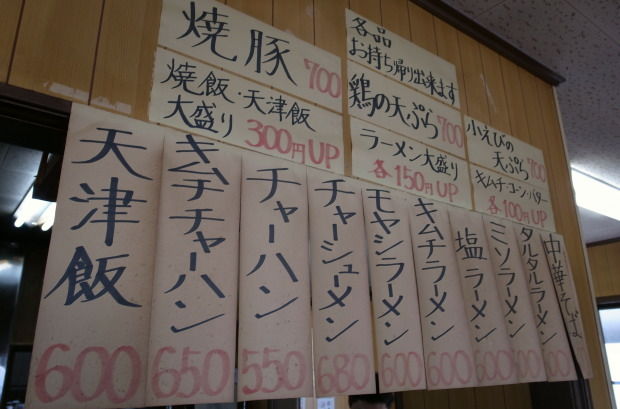 焼豚 700
各品
お持ち帰り出来ます
焼飯・天津飯
大盛り 300円UP
鶏の天ぷら 700
小えびの
天ぷら 700
ラーメン大盛り
各150円UP
キムチ・コーン・バター
各100円UP
天津飯 600
キムチチャーハン 650
チャーハン 550
チャーシューメン 680
モヤシラーメン 600
キムチラーメン 600
塩ラーメン 600
ミソラーメン 600
タルタルラーメン
中華そば